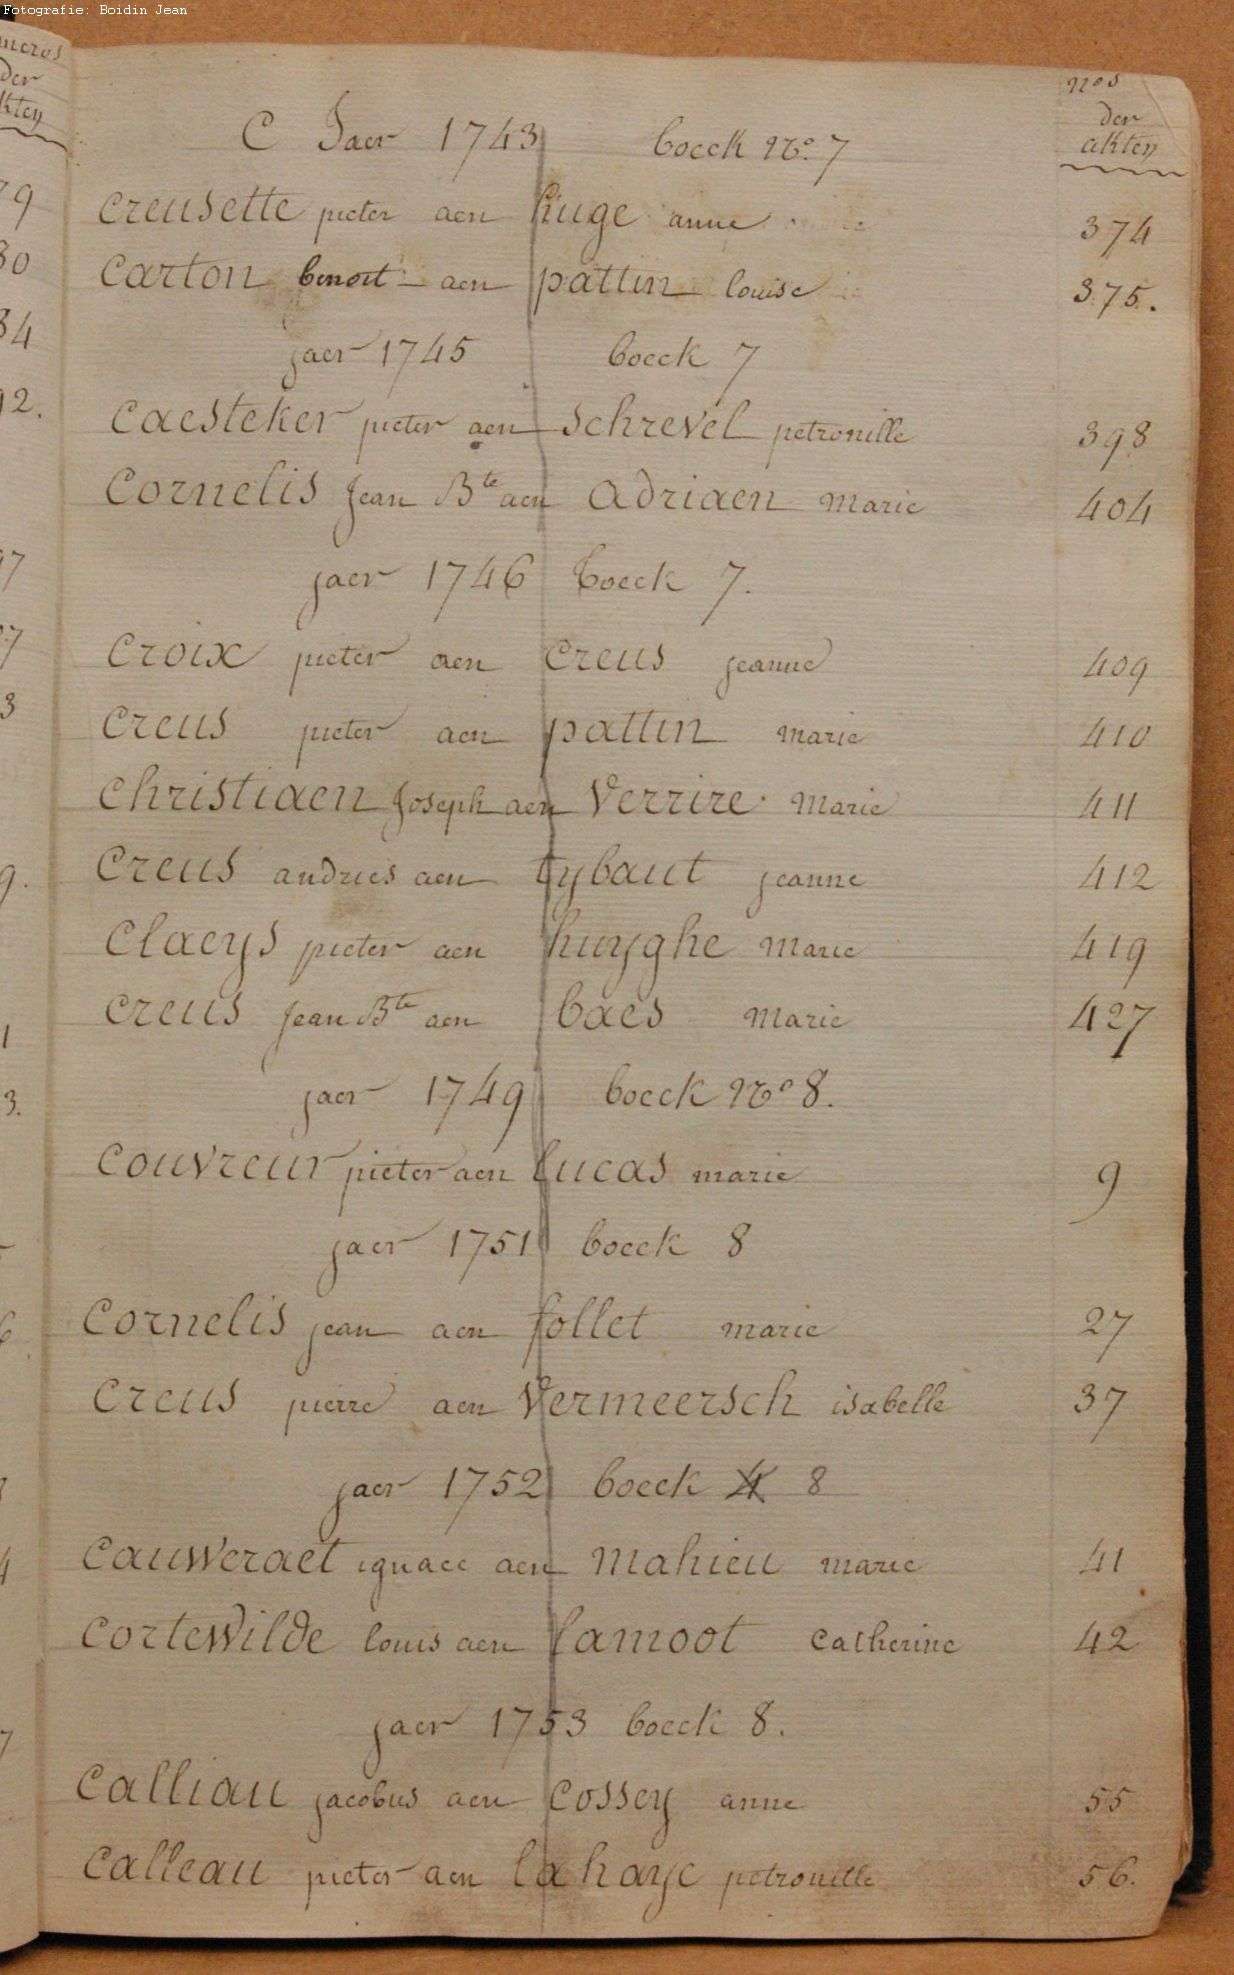 Fotografie: Boidin Jean
nos
der
akten
C Jaer 1743 boeck No. 7
creusette pieter aen huge anne 374
carton benoit aen pattin louise 375.
jaer 1745 boeck 7
caesteker pieter aen schrevel petronille 398
cornelis Jean Bte aen adriaen marie 404
jaer 1746 boeck 7.
croix pieter aen creus jeanne 409
creus pieter aen pattin marie 410
christiaen Joseph aen verrire marie 411
creus andries aen tybaut jeanne 412
claeys pieter aen huyghe marie 419
creus Jean Bte aen baes marie 427
jaer 1749 boeck No 8.
couvreur pieter aen lucas marie 9
jaer 1751 boeck 8
cornelis jean aen follet marie 27
creus pierre aen vermeersch isabelle 37
jaer 1752 boeck 4 8
cauweraet ignace aen mahieu marie 41
cortewilde louis aen lamoot catherine 42
jaer 1753 boeck 8.
calliau jacobus aen cossey anne 55
calleau pieter aen la haye petronille 56.